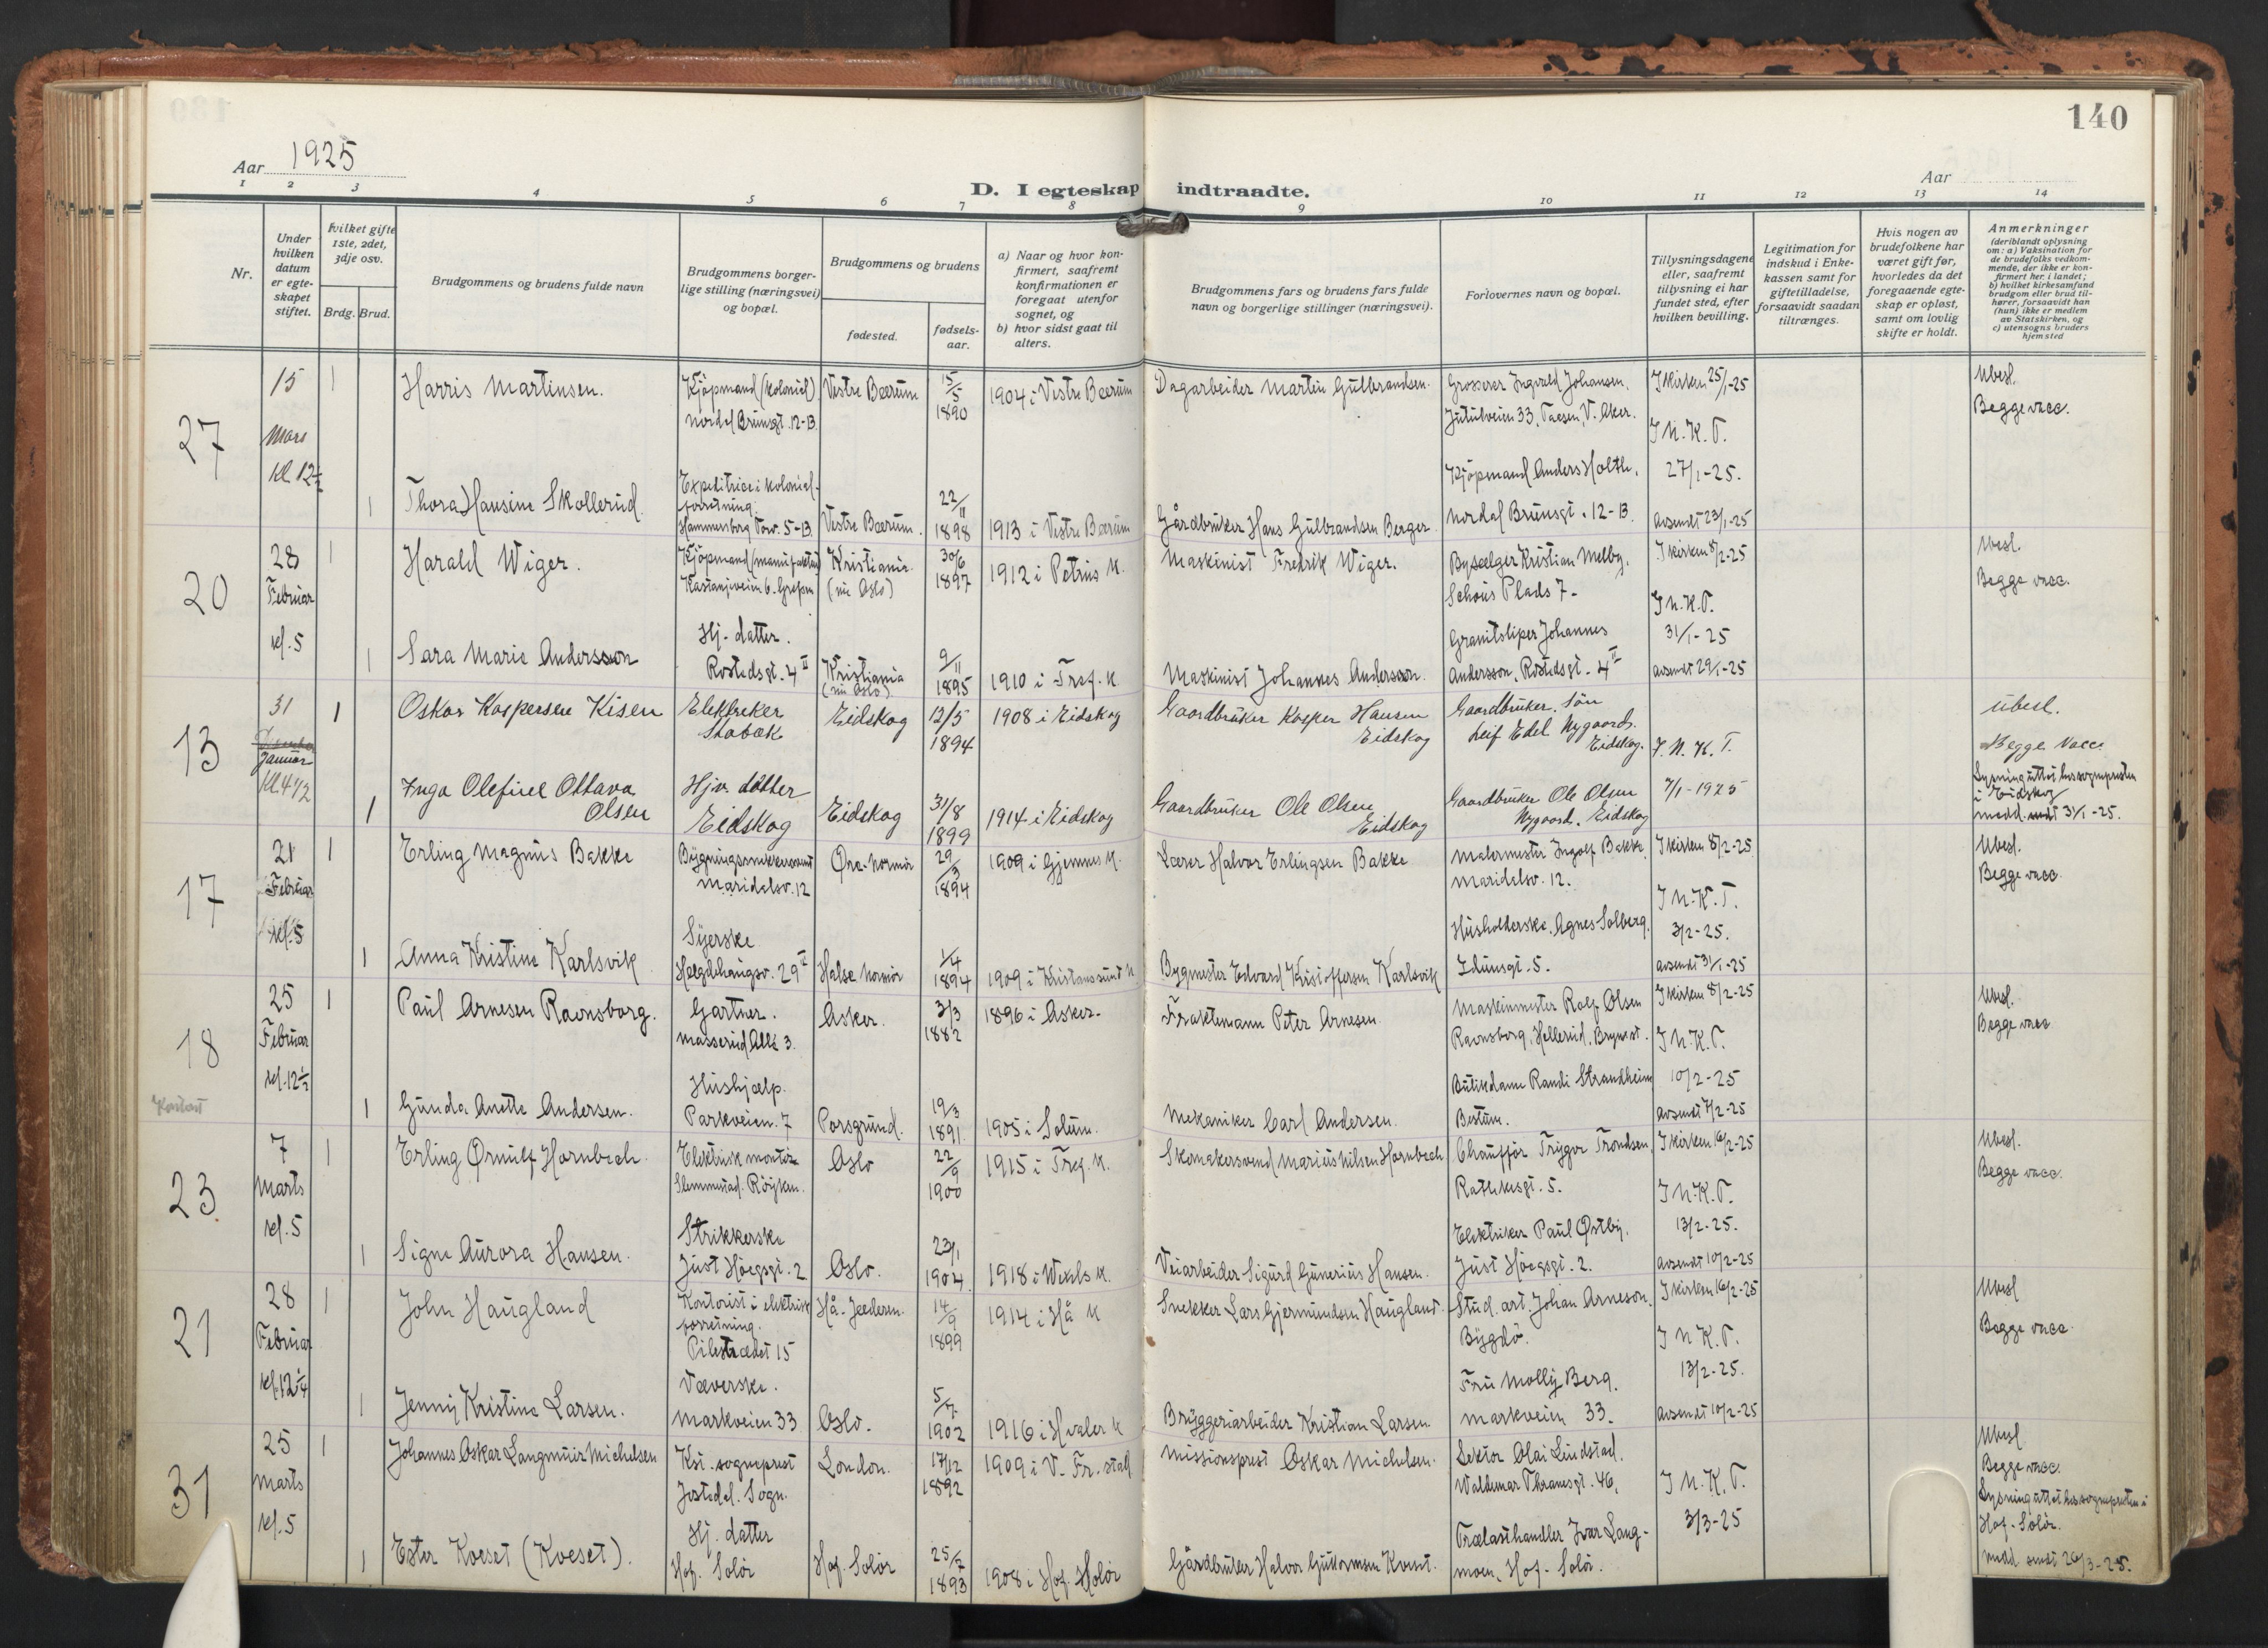 140
Aar 1925
Aar
D. I egteskap indtraadte.
1 2 3 4 5 6 7 8 9 10 11 12 13 14
Nr.
Under hvilken datum er egteskapet stiftet.
hvilket gifte 1ste, 2det, 3dje osv.
Brdg. Brud.
Brudgommens og brudens fulde navn
Brudgommens borgerlige stilling (næringsvei) og bopæl.
Brudgommens og brudens
fødested.
fødselsaar.
a) Naar og hvor konfirmert, saafremt konfirmationen er foregaat utenfor sognet, og
b) hvor sidst gaat til alters.
Brudgommens fars og brudens fars fulde navn og borgerlige stillinger (næringsvei).
Forlovernes navn og bopæl.
Tillysningsdagene eller, saafremt tillysning ei har fundet sted, efter hvilken bevilling.
Legitimation for indskud i Enkekassen samt for giftetilladelse, forsaavidt saadan tiltrænges.
Hvis nogen av brudefolkene har været gift før, hvorledes da det foregaaende egteskap er opløst, samt om lovlig skifte er holdt.
Anmerkninger
(deriblandt oplysning om: a) Vaksination for de brudefolks vedkommende, der ikke er konfirmert her i landet; b) hvilket kirkesamfund brudgom eller brud tilhører, forsaavidt han (hun) ikke er medlem av Statskirken, og c) utensogns bruders hjemsted
27
15 Mars Kl. 12½
1 Harris Martinsen. Kjöpmand (kolonial) Nordal Brunsgt. 12-13. Vestre Bærum 15/5 1890 1904 i Vestre Bærum
Dagarbeider Martin Gulbrandsen. Grosserer Ingvald Johansen, Jutulveien 33, Taasen, V. Aker. I kirken 25/1-25 I N.K.T. Ubesl. Begge vacc.
1 Thora Hansine Skollerud. Expeditrice i kolonialforretning. Hammersborg Torv. 5-13. Vestre Bærum. 22/11 1898 1913 i Vestre Bærum
Gårdbruker Hans Gulbrandsen Berger. Kjöpmand Anders Holth. Nordal Brunsgt. 12-13. 27/1-25. avsendt 23/1-25
20
28 Februar kl. 5
1 Harald Wiger. Kjöpmand (manufaktur) Kastanjeveien 6. Grefsen Kristiania (nu Oslo) 30/6 1897 1912 i Petrus K.
Maskinist Fredrik Wiger. Byselger Kristian Melby, Schous Plads 7- I kirken 8/2-25 I N.K.T. Ubesl. Begge vacc.
1 Sara Marie Andersson Hj. datter. Rostedsgt. 4 II Kristiania (nu Oslo). 9/11 1895 1910 i Tref. K.
Maskinist Johannes Andersson. Granitsliper Johannes Andersson, Rostedsgt. 4 II 31/1-25 avsendt 29/1-25
13
31 Januar Kl 4 1/2
1 Oskar Kaspersen Kisen Elektriker Stabæk Eidskog 12/5 1894 1908 i Eidskog
Gaardbruker Kasper Hansen Eidskog Gaardbruker. sön Leif Edel Nygaard. Eidskog. I. N. K. T. Ubesl. Begge Vacc.
1 Inga Olefine Ottava Olsen Hjv. datter Eidskog Eidskog 31/8 1899 1914 i Eidskog
Gaardbruker Ole Olsen Eidskog Gaardbruker Ole Olsen Nygaard. Eidskog 7/1-1925 Lysning uttat hos sognepresten i Eidskog medd. 31/1-25.
17
21 Februar kl. 5
1 Erling Magnus Bakke Maridalsv. 12 Øre-Nordmör 29/3 1894 1909 i Gjemnes K.
Lærer Halvor Erlingsen Bakke Malermester Ingolf Bakke, Maridalsv. 12. I kirken 8/2-25 I N.K.T. Ubesl. Begge vacc.
1 Anna Kristine Karlsvik Syerske Helgdehaugsv. 29 II Halse Nordmör 1/4 1894 1909 i Kristiansund N.
Bygmester Edvard Kristoffersen Karlsvik Husholderske Agnes Solberg. Idunsgt. 5. 3/2-25. avsendt 31/1-25
18
25 Februar kl. 12½
1 Paul Arnesen Ravnsborg. Gartner. Masserud Allé 3. Asker. 3/3 1882 1896 i Asker-
Fraktemann Peter Arnesen. Maskinmester Rolf Olsen Ravnsborg, Hellerud, Bryn st. I kirken 8/2-25 I N.K.T. Ubesl. Begge vacc
1 Gunda Anette Andersen. Hushjælp. Parkveien. 7 Porsgrund. 19/3 1891 1905 i Solum.
Mekaniker Carl Andersen. Butikdame Randi Strandheim Bestum. 10/2-25 avsendt 7/2-25
23
7 Marts kl. 5
1 Erling Ørnulf Hornbech. Elektrisk montör Slemmestad. Röyken. Oslo 22/9 1900 1915 i Tref. K.
Skomakersvend Marius Nilsen Hornbech Chaufför Trygve Trondsen, Rathkesgt. 5. I kirken 16/2-25 I N.K.T. Ubesl. Begge vacc.
1 Signe Aurora Hansen. Strikkerske Just Höegsgt. 2. Oslo. 23/1 1904 1918 i Wexels K.
Veiarbeider Sigurd Gunerius Hansen. Elektriker Paul Østby. Just Höegsgt. 2. 13/2-25. avsendt 10/2-25
21
28 Februar kl. 12¼
1 John Haugland Kontorist i elektrisk forretning. Pilestrædet 15 Hå-Jæderen. 14/9 1899 1914 i Hå K
Snekker Lars Gjermundsen Haugland. Stud. art. Johan Arneson, Bygdö. I kirken 16/2-25 I N.K.T. Ubesl Begge vacc.
1 Jenny Kristine Larsen. Væverske. Markveien 33 Oslo. 5/7 1902 1916 i Hvaler K
Bryggeriarbeider Kristian Larsen Fru Molly Berg. Markveien 33. 13/2-25. avsendt 10/2-25
31
25 Marts kl. 5
1 Johannes Oskar Langmuir Michelsen Kst. sogneprest Jostedal. Sogn. London. 17/12 1892 1909 i V. Fr. stad
Missionsprest Oskar Michelsen. Lektor Olai Lindstad. Waldemar Thranesgt. 46. I N.K.T. Ubesl Begge vacc. Lysning uttat hos sognepresten i Hof-Solör. medd sendt 20/3-25.
1 Ester Kveset (Kveset). Hj. datter Hof. Solör Hof. Solör 25/7 1893 1908 i Hof. Solör
Gårdbruker Halvor Guttormsen Kveset. Trælasthandler Ivar Langmoen, Hof-Solör. 3/3-25